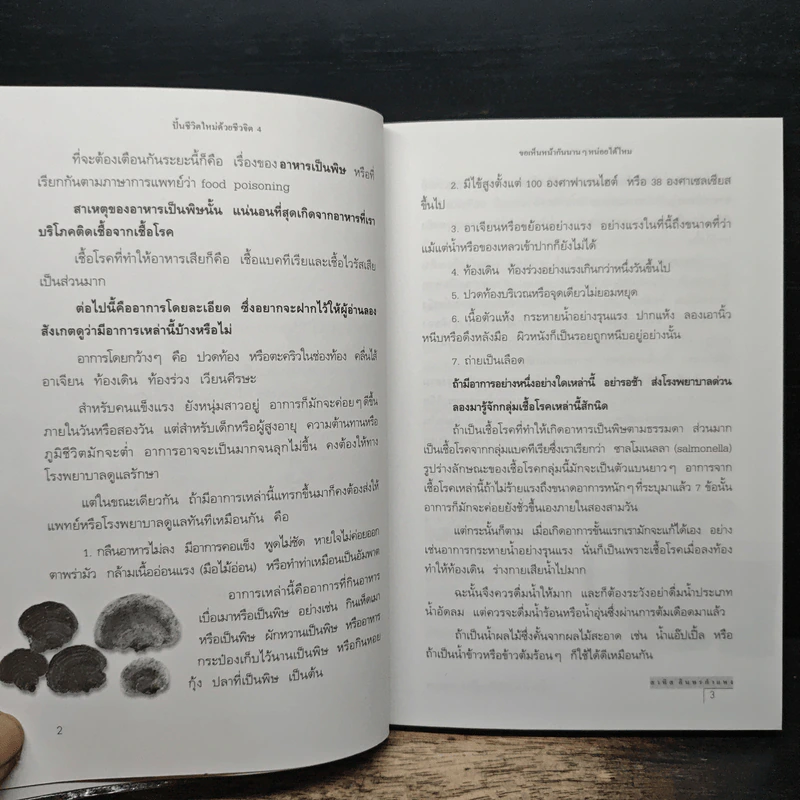 ปั้นชีวิตใหม่ด้วยชีวจิต 4
ที่จะต้องเตือนกันระยะนี้ก็คือ เรื่องของ อาหารเป็นพิษ หรือที่
เรียกกันตามภาษาการแพทย์ว่า food poisoning
สาเหตุของอาหารเป็นพิษนั้น แน่นอนที่สุดเกิดจากอาหารที่เรา
บริโภคติดเชื้อจากเชื้อโรค
เชื้อโรคที่ทำให้อาหารเสียก็คือ เชื้อแบคทีเรียและเชื้อไวรัสเสีย
เป็นส่วนมาก
ต่อไปนี้คืออาการโดยละเอียด ซึ่งอยากจะฝากไว้ให้ผู้อ่านลอง
สังเกตดูว่ามีอาการเหล่านี้บ้างหรือไม่
อาการโดยกว้างๆ คือ ปวดท้อง หรือตะคริวในช่องท้อง คลื่นไส้
อาเจียน ท้องเดิน ท้องร่วง เวียนศีรษะ
สำหรับคนแข็งแรง ยังหนุ่มสาวอยู่ อาการก็มักจะค่อยๆดีขึ้น
ภายในวันหรือสองวัน แต่สำหรับเด็กหรือผู้สูงอายุ ความต้านทานหรือ
ภูมิชีวิตมักจะต่ำ อาการอาจจะเป็นมากจนลุกไม่ขึ้น คงต้องให้ทาง
โรงพยาบาลดูแลรักษา
แต่ในขณะเดียวกัน ถ้ามีอาการเหล่านี้แทรกขึ้นมาก็คงต้องส่งให้
แพทย์หรือโรงพยาบาลดูแลทันทีเหมือนกัน คือ
1. กลืนอาหารไม่ลง มีอาการคอแข็ง พูดไม่ชัด หายใจไม่ค่อยออก
ตาพร่ามัว กล้ามเนื้ออ่อนแรง (มือไม้อ่อน) หรือทำท่าเหมือนเป็นอัมพาต
อาการเหล่านี้คืออาการที่กินอาหาร
เบื่อเมาหรือเป็นพิษ อย่างเช่น กินเห็ดเมา
หรือเป็นพิษ ผักหวานเป็นพิษ หรืออาหาร
กระป๋องเก็บไว้นานเป็นพิษ หรือกินหอย
กุ้ง ปลาที่เป็นพิษ เป็นต้น
2
ขอเห็นหน้ากันนานๆหน่อยได้ไหม
2. มีไข้สูงตั้งแต่ 100 องศาฟาเรนไฮต์ หรือ 38 องศาเซลเซียส
ขึ้นไป
3. อาเจียนหรือขย้อนอย่างแรง อย่างแรงในที่นี้ถึงขนาดที่ว่า
แม้แต่น้ำหรือของเหลวเข้าปากก็ยังไม่ได้
4. ท้องเดิน ท้องร่วงอย่างแรงเกินกว่าหนึ่งวันขึ้นไป
5. ปวดท้องบริเวณหรือจุดเดียวไม่ยอมหยุด
6. เนื้อตัวแห้ง กระหายน้ำอย่างรุนแรง ปากแห้ง ลองเอานิ้ว
หนีบหรือดึงหลังมือ ผิวหนังก็เป็นรอยถูกหนีบอยู่อย่างนั้น
7. ถ่ายเป็นเลือด
ถ้ามีอาการอย่างหนึ่งอย่างใดเหล่านี้ อย่ารอช้า ส่งโรงพยาบาลด่วน
ลองมารู้จักกลุ่มเชื้อโรคเหล่านี้สักนิด
ถ้าเป็นเชื้อโรคที่ทำให้เกิดอาหารเป็นพิษตามธรรมดา ส่วนมาก
เป็นเชื้อโรคจากกลุ่มแบคทีเรียซึ่งเราเรียกว่า ซาลโมเนลลา (salmonella)
รูปร่างลักษณะของเชื้อโรคกลุ่มนี้มักจะเป็นตัวแบนยาวๆ อาการจาก
เชื้อโรคเหล่านี้ถ้าไม่ร้ายแรงถึงขนาดอาการหนักๆที่ระบุมาแล้ว 7 ข้อนั้น
อาการก็มักจะค่อยยังชั่วขึ้นเองภายในสองสามวัน
แต่กระนั้นก็ตาม เมื่อเกิดอาการขั้นแรกเรามักจะแก้ได้เอง อย่าง
เช่นอาการกระหายน้ำอย่างรุนแรง นั่นก็เป็นเพราะเชื้อโรคเมื่อลงท้อง
ทำให้ท้องเดิน ร่างกายเสียน้ำไปมาก
ฉะนั้นจึงควรดื่มน้ำให้มาก และก็ต้องระวังอย่าดื่มน้ำประเภท
น้ำอัดลม แต่ควรจะดื่มน้ำร้อนหรือน้ำอุ่นซึ่งผ่านการต้มเดือดมาแล้ว
ถ้าเป็นน้ำผลไม้ซึ่งคั้นจากผลไม้สะอาด เช่น น้ำแอ๊ปเปิ้ล หรือ
ถ้าเป็นน้ำข้าวหรือข้าวต้มร้อนๆ ก็ใช้ได้ดีเหมือนกัน
สาทิส อินทรกำแหง
3